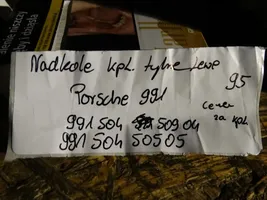 Nadkole kpl. tylne lewe
Porsche 991
95
cena
za kpl.
991 504 50904
991 504 50505